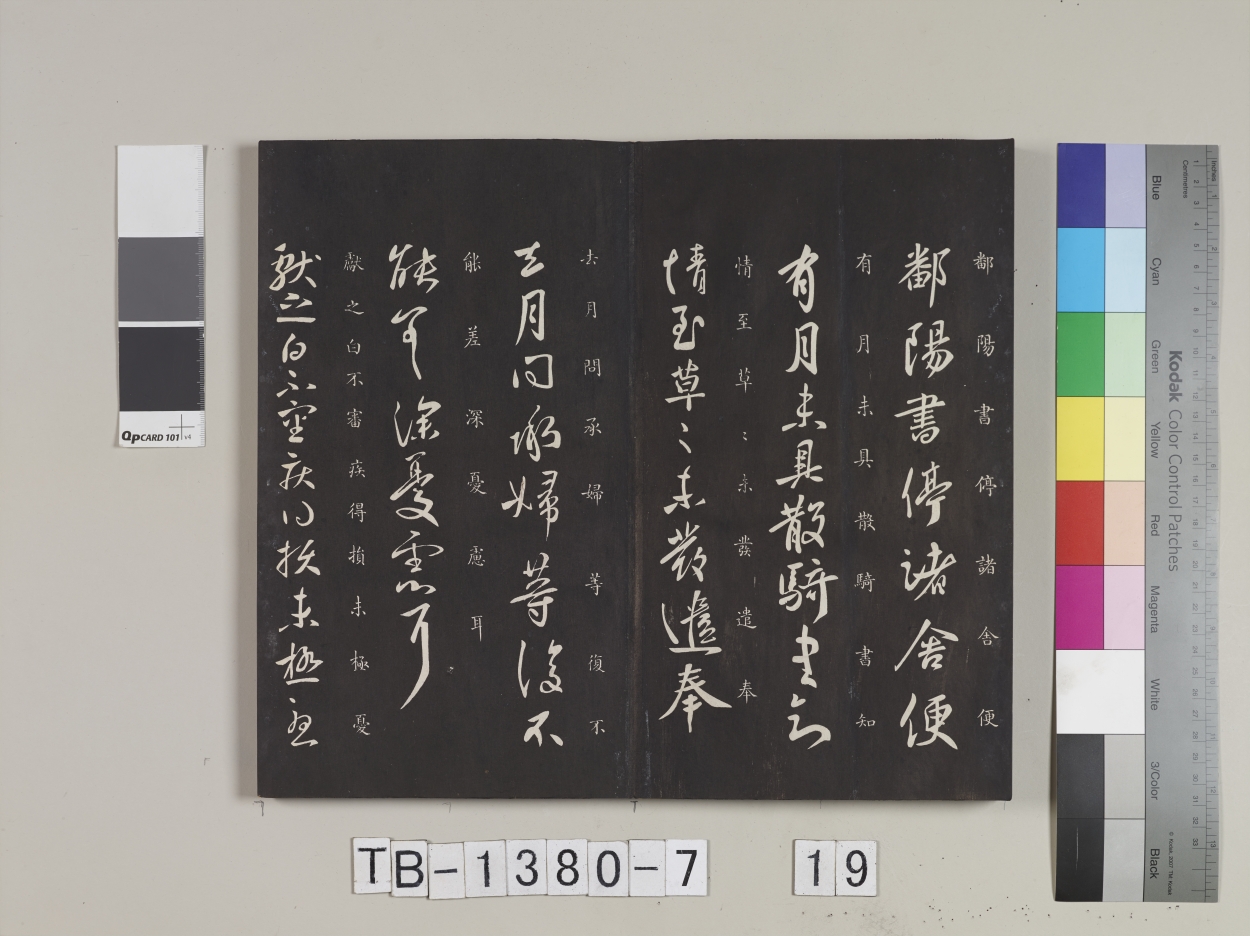 鄱陽書停諸舍便
鄱陽書停諸舍便
有月未具散騎書知
有月未具散騎書知
情至草〻未發遣奉
情至草〻未發遣奉
去月問承婦等復不
去月問承婦等復不
能差深憂慮耳
能差深憂慮耳
獻之白不審疾得損未極憂
獻之白不審疾得損未極憂
TB-1380-7 19
QPCARD 101 v4
Kodak Color Control Patches
Blue
Cyan
Green
Yellow
Red
Magenta
White
3/Color
Black
Inches
Centimetres
© Kodak, 2007 TM: Kodak